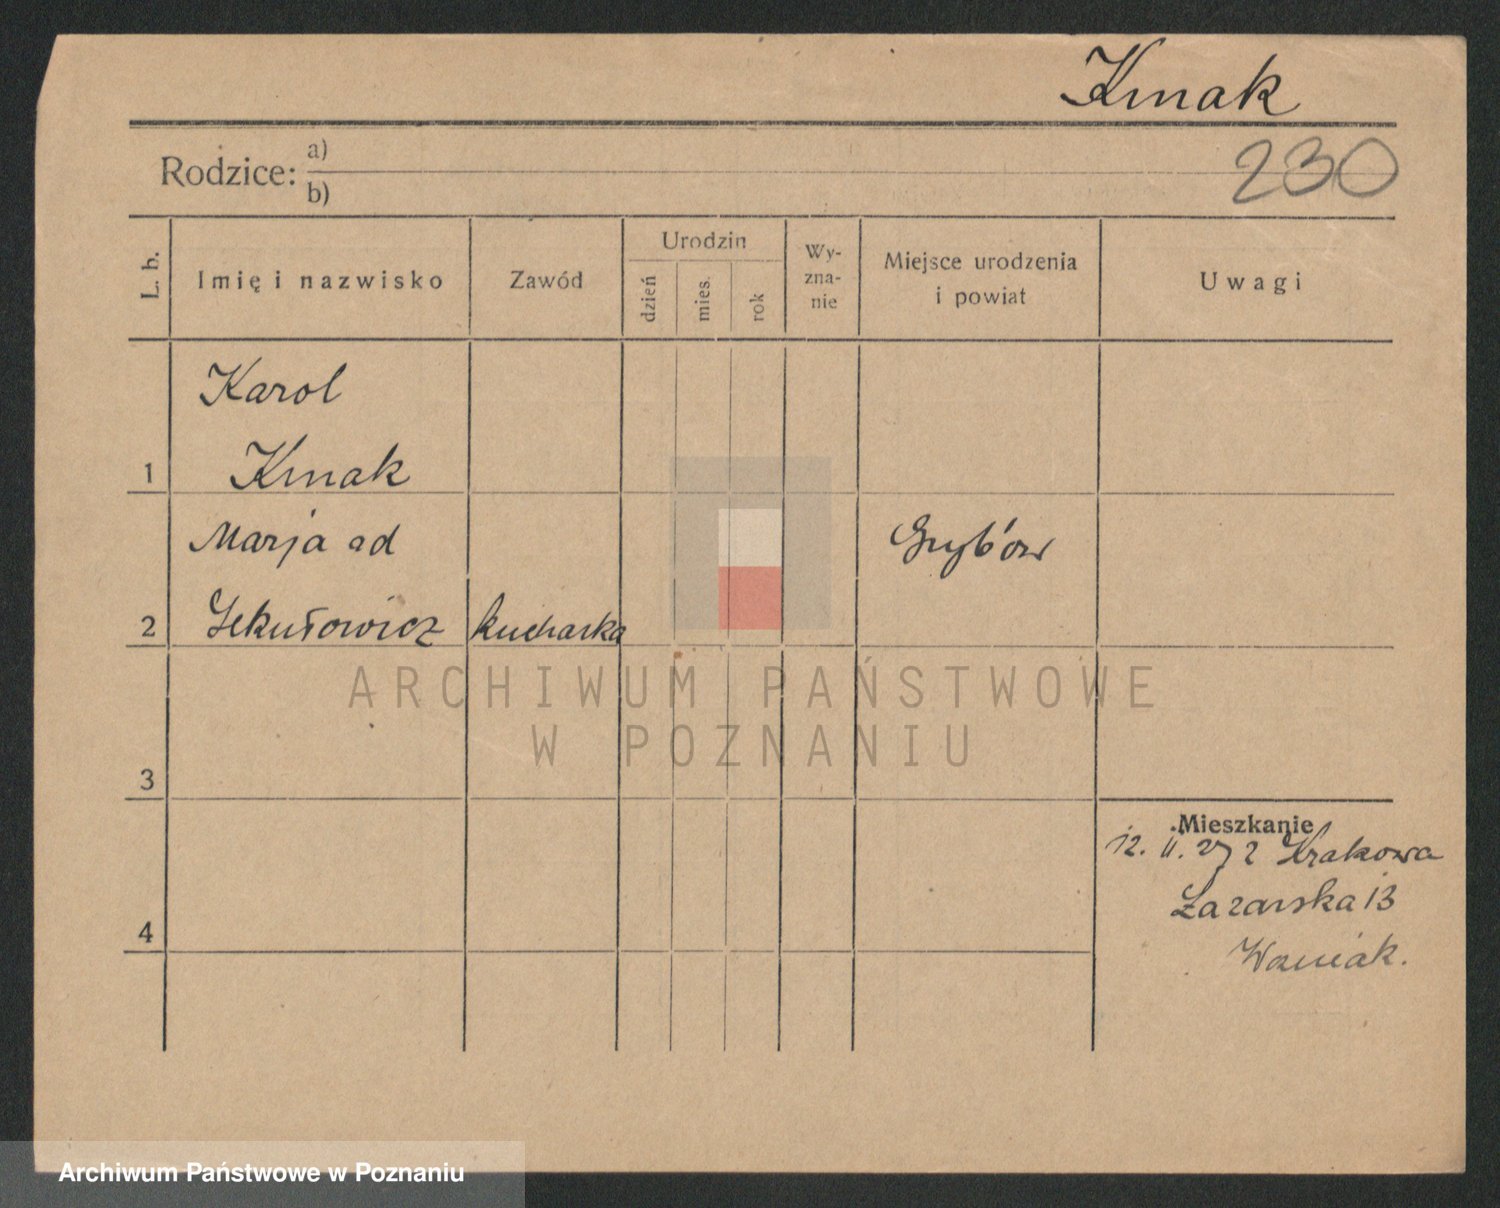 Kmak
Rodzice: a)
b)
230
L. b.
Imię i nazwisko
Zawód
Urodzin
dzień
mies.
rok
Wy-
zna-
nie
Miejsce urodzenia
i powiat
Uwagi
Karol
1 Kmak
Marja od
Grybów
2 Sekułowicz kucharka
ARCHIWUM PAŃSTWOWE
W POZNANIU
3
Mieszkanie
12. II. 27 z Krakowa
Łazarska 13
Woźniak.
4
Archiwum Państwowe w Poznaniu